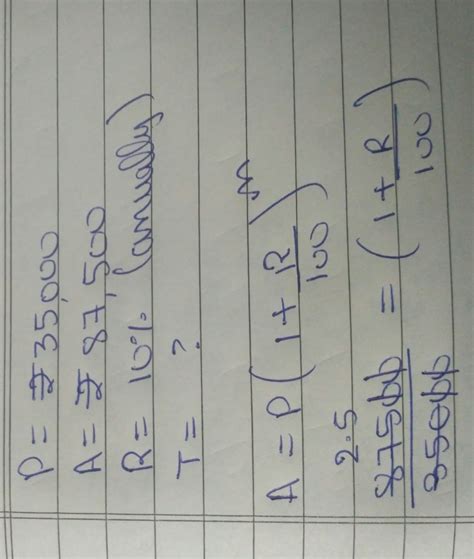 P = ₹35,000
A = ₹87,500
R = 10% (annually)
T = ?
A = P(1 + R/100)^n
2.5
87500/35000 = (1 + R/100)